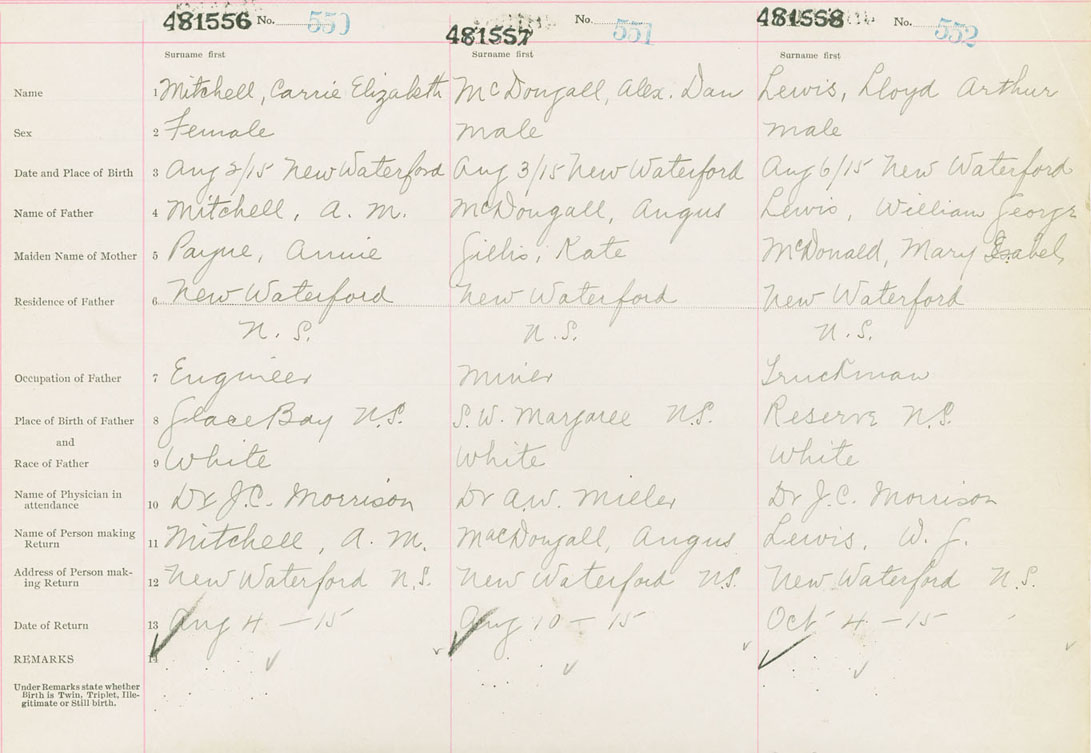 481556 No. 550 481557 No. 551 481558 No. 552
Surname first Surname first Surname first
Name 1 Mitchell, Carrie Elizabeth McDougall, Alex. Dan Lewis, Lloyd Arthur
Sex 2 Female male male
Date and Place of Birth 3 Aug 2/15 New Waterford Aug 3/15 New Waterford Aug 6/15 New Waterford
Name of Father 4 Mitchell, A. M. McDougall, Angus Lewis, William George
Maiden Name of Mother 5 Payne, Annie Gillis, Kate McDonald, Mary Isabel
Residence of Father 6 New Waterford New Waterford New Waterford
N. S. N. S. N. S.
Occupation of Father 7 Engineer miner Truckman
Place of Birth of Father 8 Glace Bay N.S. S.W. Margaree N.S. Reserve N.S.
and
Race of Father 9 White White White
Name of Physician in
attendance 10 Dr J.C. Morrison Dr A.W. Miller Dr J.C. Morrison
Name of Person making
Return 11 Mitchell, A. M. MacDougall, Angus Lewis, W. G.
Address of Person mak-
ing Return 12 New Waterford N.S. New Waterford N.S. New Waterford N.S.
Date of Return 13 Aug 4 - 15 Aug 10 - 15 Oct 4 - 15
REMARKS 14
Under Remarks state whether
Birth is Twin, Triplet, Ille-
gitimate or Still birth.